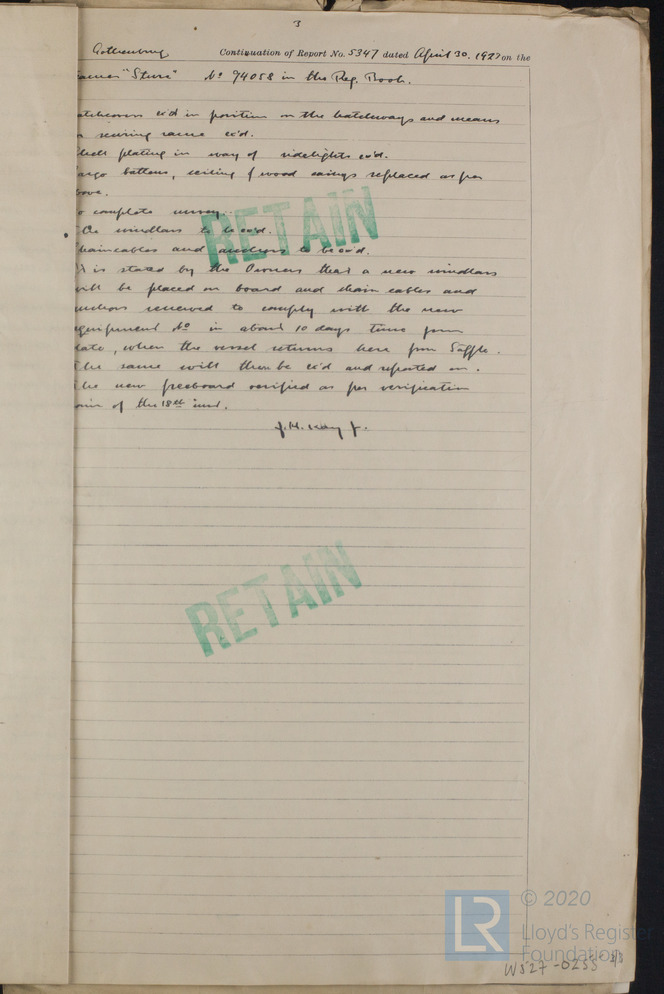 3
Gothenburg Continuation of Report No. 5347 dated April 30. 1927 on the
"Sture" No 94058 in the Reg. Book.
ex'd in position on the hatchways and means
securing same ex'd.
plating in way of sidelights ex'd.
battens, ceiling & wood casings replaced as per
complete survey.
windlass to be ex'd.
and anchors to be ex'd.
is stated by the Owners that a new windlass
be placed on board and chain cables and
renewed to comply with the new
No in about 10 days time from
, when the vessel returns here from Säffle.
same will then be ex'd and reported on.
new freeboard verified as per verification
of the 18th inst.
RETAIN
RETAIN
LR
© 2020
Lloyd's Register
Foundation
W527-0255 3/3